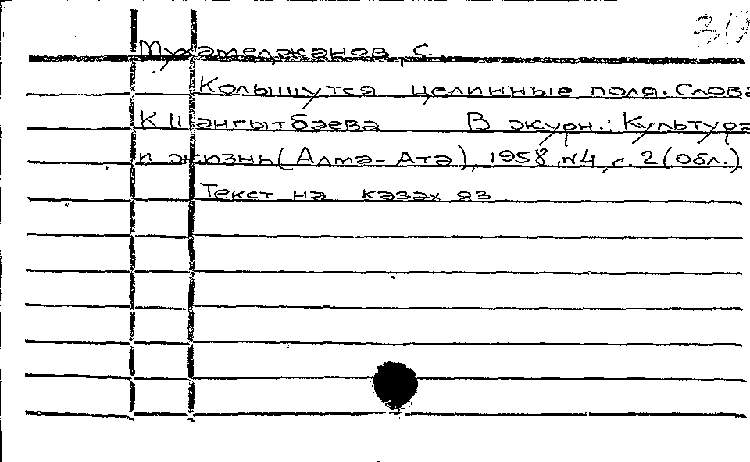 319
Мухамеджанов, С.
Колышутся целинные поля. Слова
К. Шангытбаева В журн.: Культура
и жизнь (Алма-Ата), 1958, №4, с. 2 (обл.)
Текст на казах. яз.